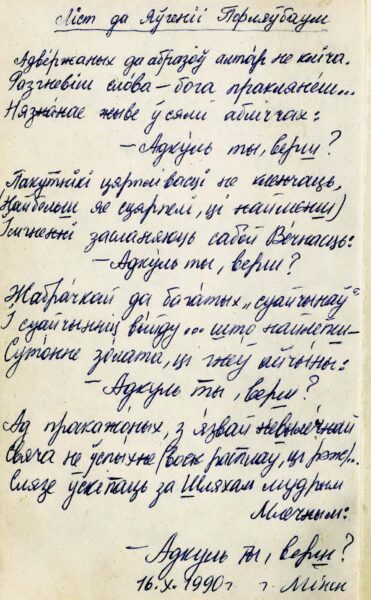 Ліст да Яўгеніі Пфляўбаум
Адвержаных да абразоў алтар не кліча.
Разгневіш слова – бога праклянеш...
Нязнанае жыве ў сямі абліччах:
– Адкуль ты, верш?
Пакутнікі цярплівасці не кленчаць,
(Найбольш яе сцярпелі, ці найменш)
Імгненні засланяюць сабой Вечнасць:
– Адкуль ты, верш?
Жабрачкай да багатых „суайчынаў"
І суайчынніц выйду... што найлепш –
Сутонне золата, ці гнеў айчыны:
– Адкуль ты, верш?
Ад пракажоных, з язвай невылечнай
Свяча не ўспыхне (воск расплаў, ці рэж)..
Слязе ўскіпаць за Шляхам мудрым
Млечным:
– Адкуль ты, верш?
16.X.1990 г. г. Мінск